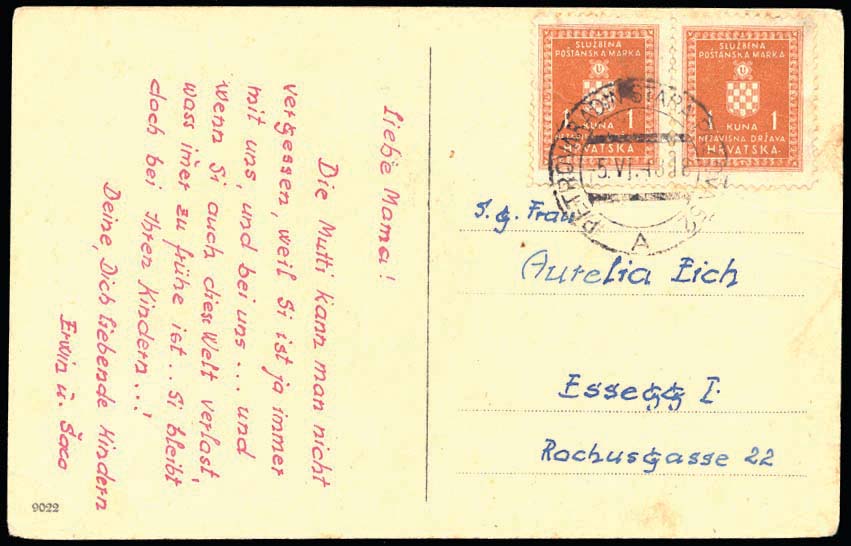 Liebe Mama!
Die Mutti kann man nicht
vergessen, weil Si ist ja immer
mit uns, und bei uns ... und
wenn Si auch diese Welt verlast,
wass im̄er zu frühe ist .. Si bleibt
doch bei Ihren Kindern ...!
Deine, Dich liebende Kindern
Erwin u. Saco
9022
SLUŽBENA
POŠTANSKA MARKA
1 KUNA 1
NEZAVISNA DRŽAVA
HRVATSKA
SLUŽBENA
POŠTANSKA MARKA
1 KUNA 1
NEZAVISNA DRŽAVA
HRVATSKA
A
S. g. Frau
Aurelia Eich
Essegg I.
Rochusgasse 22